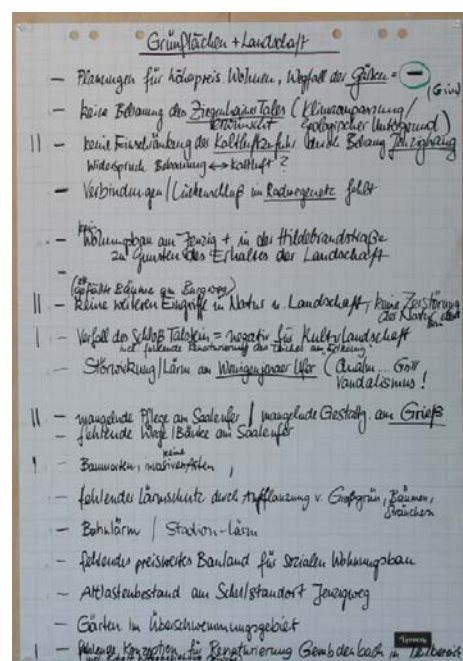 Grünflächen + Landschaft
— Planungen für höherpreis. Wohnen, Wegfall der Gärten = −
(Grün)
— keine Bebauung des Ziegenhainer Tales (Klimaanpassung/
erwünscht Geologischer Untergrund)
|| — keine Einschränkung der Kaltluftzufuhr durch Bebaung Jenzighang
Widerspruch Bebauung ↔ Kaltluft ?
— Verbindungen / Lückenschluß im Radwegenetz fehlt
kein
— Wohnungsbau am Jenzig + in der Hildebrandstraße
zu Gunsten des Erhaltes der Landschaft
—
(gefällte Bäume am Burgweg)
|| — keine weiteren Eingriffe in Natur u. Landschaft, keine Zerstörung
der Natur
| — Verfall des Schloß Talstein = negativ für Kulturlandschaft
incl. fehlende Renaturierung des Teiches am
— Störwirkung / Lärm am Wenigenjenaer Ufer (Qualm...
Vandalismus !
|| — mangelnde Pflege am Saaleufer / mangelnde Gestaltg. am Grieß
— fehlende Wege / Bänke am Saaleufer
keine
| — Baumarten, invasiven Arten,
— fehlender Lärmschutz durch Anpflanzung v. Großgrün, Bäumen,
Sträuchern
— Bahnlärm / Stadion-Lärm
— fehlendes preiswertes Bauland für sozialen Wohnungsbau
— Altlastenbestand am Schulstandort Jenzigweg
— Gärten im Überschwemmungsgebiet
| — fehlende Konzeption für Renaturierung Gembdenbach in Teilbereich